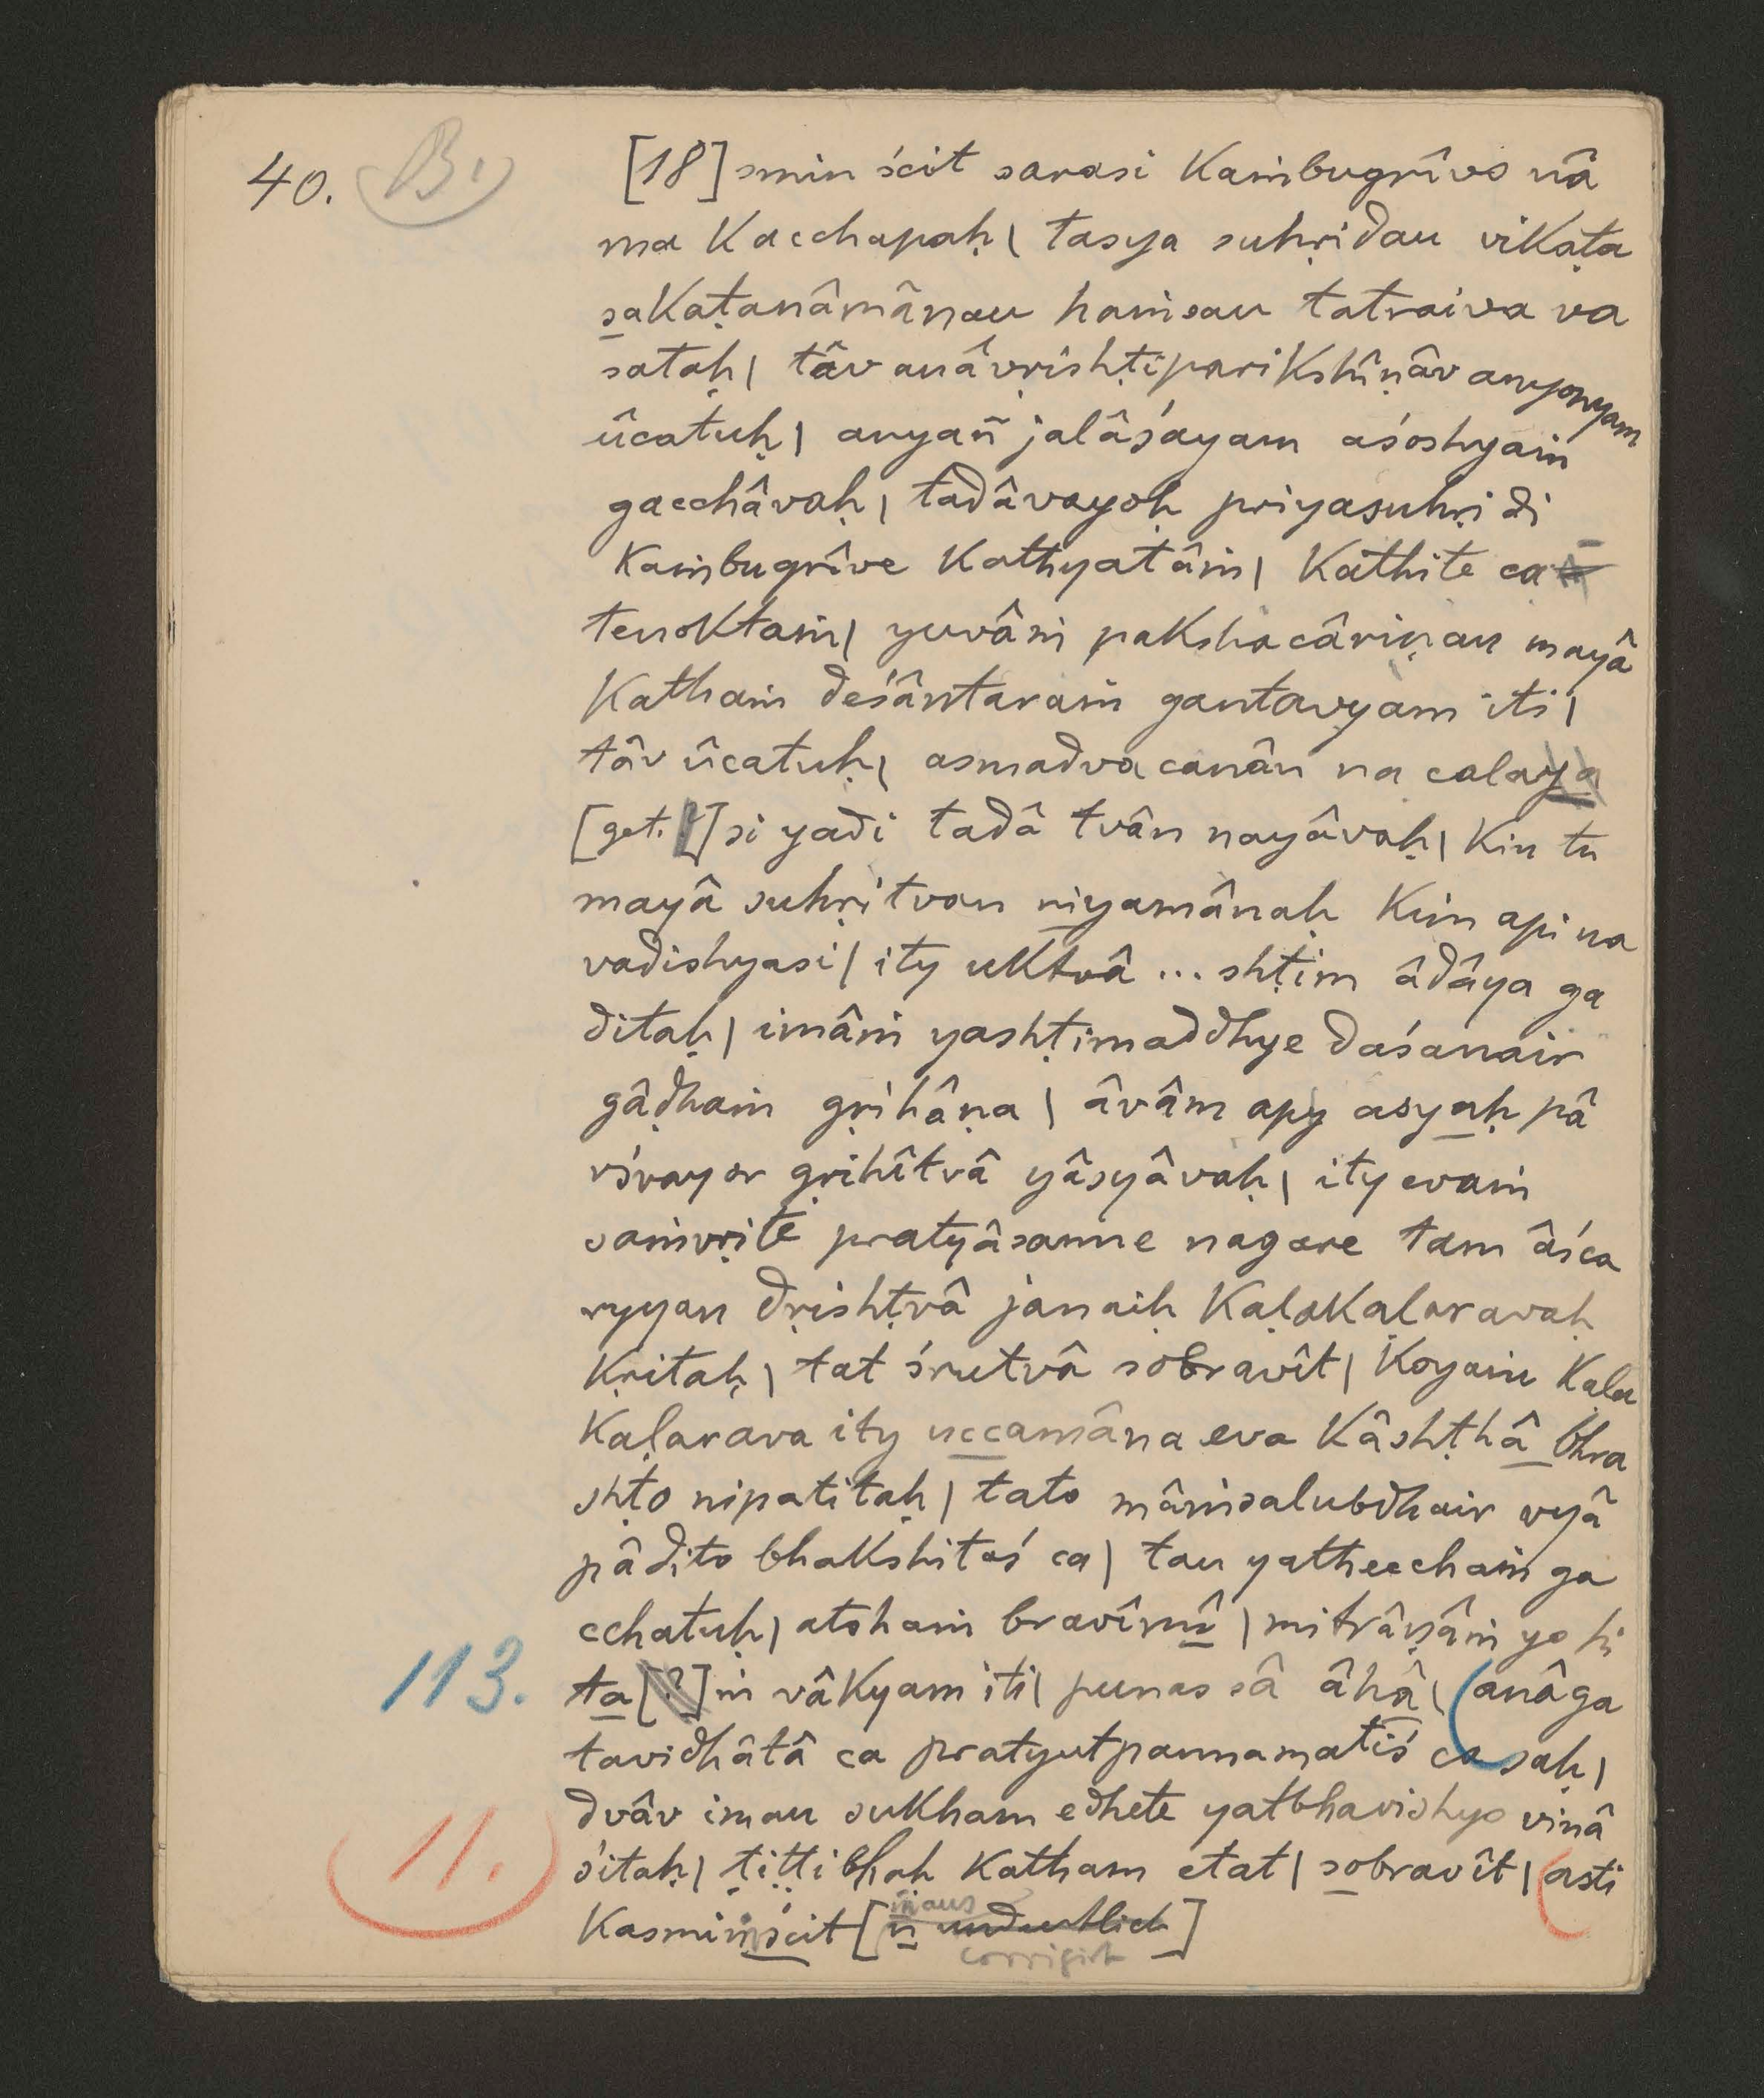 40. B1)
[18] smin ścit sarasi Kaṁbugrîvo nâ
ma Kacchapaḥ | tasya suhṛidau vikaṭa
sakaṭanâmânau haṁsau tatraiva va
sataḥ | tâv anâvṛishṭiparikshîṇâv anyonyam
ûcatuḥ | anyañ jalâśayam aśoshyaṁ
gacchâvaḥ | tadâvayoḥ priyasuhṛidi
Kaṁbugrîve Kathyatâṁ | Kathite ca
tenoktaṁ | yuvâṁ pakshacâriṇau mayâ
Kathaṁ deśântaraṁ gantavyam iti |
tâv ûcatuḥ | asmadvacanân na calaya
[get. ?] si yadi tadâ tvân nayâvaḥ | Kin tu
mayâ suhṛitvan niyamânaḥ Kim api na
vadishyasi | ity uktvâ ... shṭim âdâya ga
ditaḥ | imâṁ yashṭimaddhye daśanair
gâḍhaṁ gṛihâṇa | âvâm apy asyaḥ pâ
rśvayor gṛihîtvâ yâsyâvaḥ | ity evaṁ
saṁvṛite pratyâsanne nagare tam âśca
ryyan dṛishṭvâ janaiḥ Kaḷakaḷaravaḥ
Kṛitaḥ | tat śrutvâ sobravît | Koyaṁ Kaḷa
Kaḷarava ity uccamâna eva Kâshṭhâ bhra
shṭo nipatitaḥ | tato mâṁsalubdhair vyâ
pâdito bhakshitaś ca | tau yatheccham ga
cchatuḥ | atohaṁ bravîmî | mitrâṇâṁ yo hi
113. ta [?] ṁ vâkyam iti | punas sâ âhâ | (anâga
tavidhâtâ ca pratyutpannamatiś ca saḥ |
dvâv imau sukham edhete yatbhavishyo vinâ
11. śitaḥ | ṭiṭṭibhaḥ Katham etat | sobravît | (asti
Kasmiṁścit [ṁ aus ñ undeutlich corrigirt]